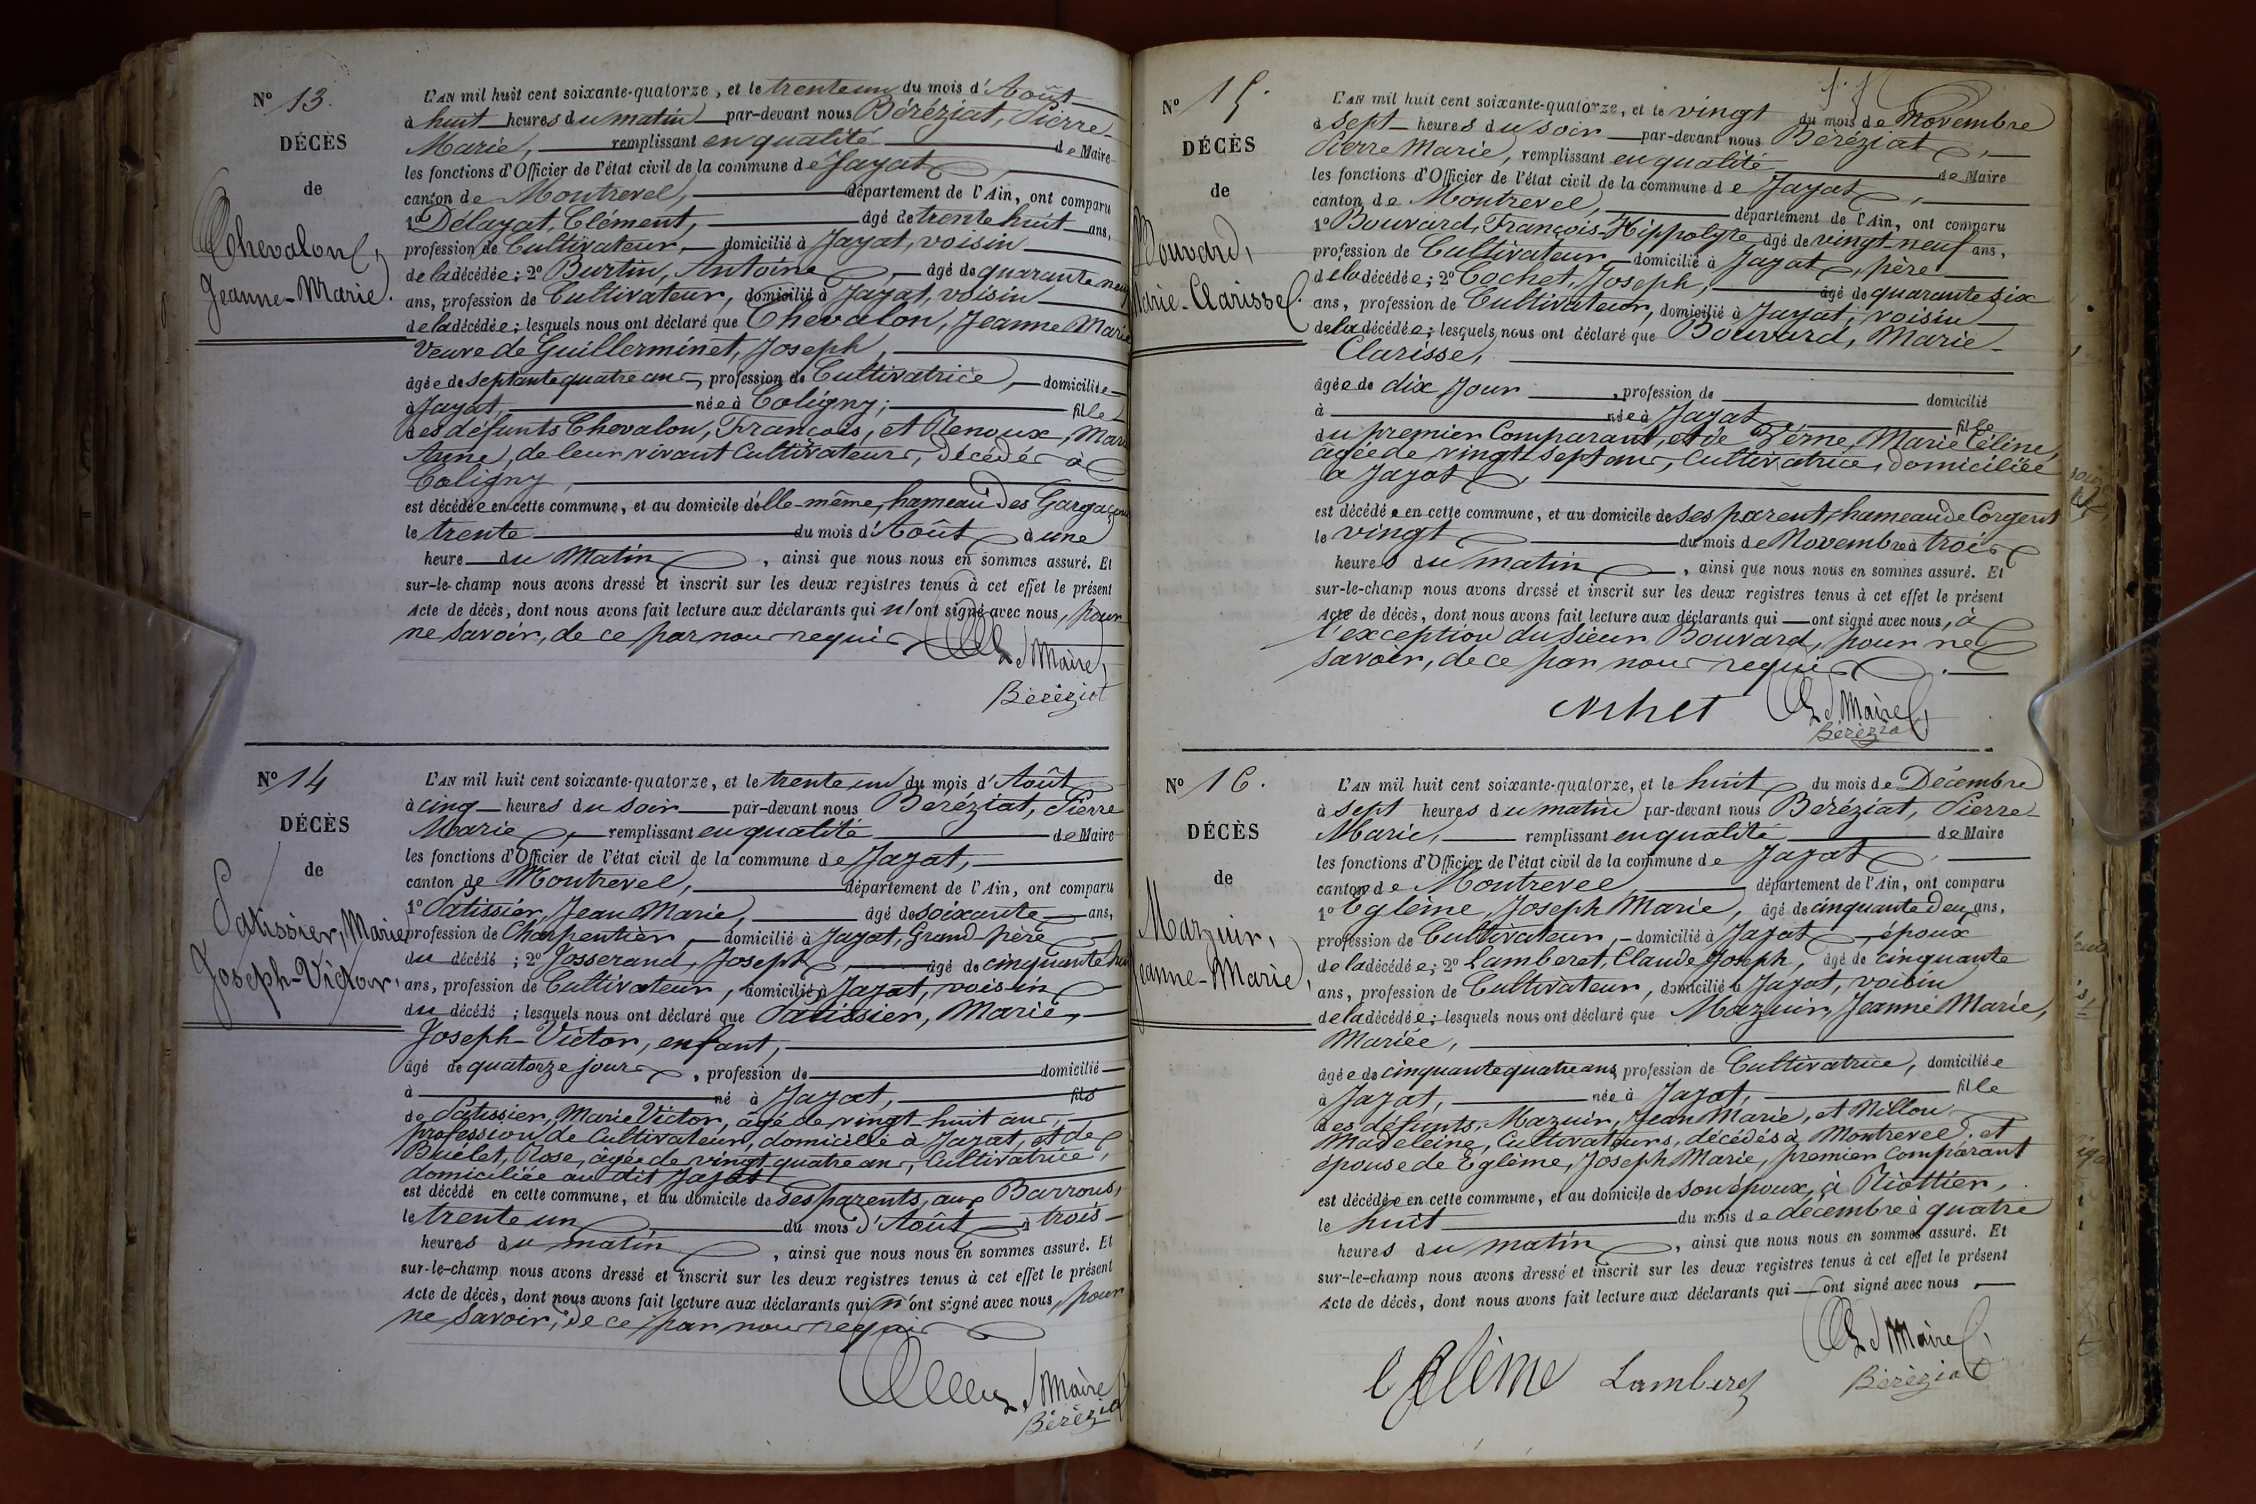 N° 13.
DÉCÈS
de
Chevalon,
Jeanne-Marie.
L'AN mil huit cent soixante-quatorze, et le trente un du mois d'Août
à huit heures du matin par-devant nous Béréziat, Pierre
Marie, remplissant en qualité de Maire
les fonctions d'Officier de l'état civil de la commune de Jayat,
canton de Montrevel, département de l'Ain, ont comparu
1° Délayat, Clément, âgé de trente huit ans,
profession de Cultivateur, domicilié à Jayat, voisin
de la décédée; 2° Burtin, Antoine, âgé de quarante neuf
ans, profession de Cultivateur, domicilié à Jayat, voisin
de la décédée; lesquels nous ont déclaré que Chevalon, Jeanne Marie
Veuve de Guillerminet, Joseph,
âgée de septante quatre ans, profession de Cultivatrice, domiciliée
à Jayat, née à Coligny; fille
des défunts Chevalon, François, et Renoux, Marie
Anne, de leur vivant Cultivateurs, décédés à
Coligny,
est décédée en cette commune, et au domicile d'elle-même, hameau des
le trente du mois d'Août à une
heure du Matin, ainsi que nous nous en sommes assuré. Et
sur-le-champ nous avons dressé et inscrit sur les deux registres tenus à cet effet le présent
Acte de décès, dont nous avons fait lecture aux déclarants qui n'ont signé avec nous, pour
ne savoir, de ce par nous requis.
Le Maire,
Béréziat
N° 14
DÉCÈS
de
Patissier, Marie
Joseph-Victor.
L'AN mil huit cent soixante-quatorze, et le trente un du mois d'Août
à cinq heures du soir par-devant nous Béréziat, Pierre
Marie, remplissant en qualité de Maire
les fonctions d'Officier de l'état civil de la commune de Jayat,
canton de Montrevel, département de l'Ain, ont comparu
1° Patissier, Jean Marie, âgé de soixante ans,
profession de Charpentier, domicilié à Jayat, Grand-père
du décédé; 2° Josserand, Joseph, âgé de cinquante
ans, profession de Cultivateur, domicilié à Jayat, voisin
du décédé; lesquels nous ont déclaré que Patissier, Marie,
Joseph-Victor, enfant,
âgé de quatorze jours, profession de domicilié
à né à Jayat, fils
de Patissier, Marie Victor, âgé de vingt-huit ans,
profession de Cultivateur, domicilié à Jayat, et de
Buélet, Rose, âgée de vingt quatre ans, Cultivatrice,
domiciliée au dit Jayat
est décédé en cette commune, et au domicile de ses parents, aux Barrous,
le trente un du mois d'Août à trois
heures du matin, ainsi que nous nous en sommes assuré. Et
sur-le-champ nous avons dressé et inscrit sur les deux registres tenus à cet effet le présent
Acte de décès, dont nous avons fait lecture aux déclarants qui n'ont signé avec nous, pour
ne savoir, de ce par nous requis
Le Maire
Béréziat
N° 15.
DÉCÈS
de
Bouvard,
Marie-Clarisse.
L'AN mil huit cent soixante-quatorze, et le vingt du mois de Novembre
à sept heures du soir par-devant nous Béréziat,
Pierre Marie, remplissant en qualité de Maire
les fonctions d'Officier de l'état civil de la commune de Jayat,
canton de Montrevel, département de l'Ain, ont comparu
1° Bouvard, François-Hippolyte, âgé de vingt-neuf ans,
profession de Cultivateur, domicilié à Jayat, père
de la décédée; 2° Cochet, Joseph, âgé de quarante six
ans, profession de Cultivateur, domicilié à Jayat, voisin
de la décédée; lesquels nous ont déclaré que Bouvard, Marie-
Clarisse,
âgée de dix Jour, profession de domicilié
à née à Jayat fille
du premier Comparant, et de Verne, Marie Céline,
âgée de vingt sept ans, Cultivatrice, domiciliée
à Jayat,
est décédée en cette commune, et au domicile de ses parents, hameau de Corgent
le vingt du mois de Novembre à trois
heures du matin, ainsi que nous nous en sommes assuré. Et
sur-le-champ nous avons dressé et inscrit sur les deux registres tenus à cet effet le présent
Acte de décès, dont nous avons fait lecture aux déclarants qui ont signé avec nous, à
l'exception du sieur Bouvard, pour ne
savoir, de ce par nous requis.
Cochet
Le Maire,
Béréziat
N° 16.
DÉCÈS
de
Mazuir,
Jeanne-Marie,
L'AN mil huit cent soixante-quatorze, et le huit du mois de Décembre
à sept heures du matin par-devant nous Béréziat, Pierre
Marie, remplissant en qualité de Maire
les fonctions d'Officier de l'état civil de la commune de Jayat,
canton de Montrevel, département de l'Ain, ont comparu
1° Eglème, Joseph Marie, âgé de cinquante deux ans,
profession de Cultivateur, domicilié à Jayat, époux
de la décédée; 2° Lamberet, Claude Joseph, âgé de cinquante
ans, profession de Cultivateur, domicilié à Jayat, voisin
de la décédée; lesquels nous ont déclaré que Mazuir, Jeanne Marie,
Mariée,
âgée de cinquante quatre ans, profession de Cultivatrice, domiciliée
à Jayat, née à Jayat, fille
des défunts, Mazuir, Jean Marie, et Millon
Madeleine, Cultivateurs, décédés à Montrevel, et
épouse de Eglème, Joseph Marie, premier Comparant
est décédée en cette commune, et au domicile de son époux, à Riottier,
le huit du mois de décembre à quatre
heures du matin, ainsi que nous nous en sommes assuré. Et
sur-le-champ nous avons dressé et inscrit sur les deux registres tenus à cet effet le présent
Acte de décès, dont nous avons fait lecture aux déclarants qui ont signé avec nous
Le Maire,
eglème Lamberet Béréziat